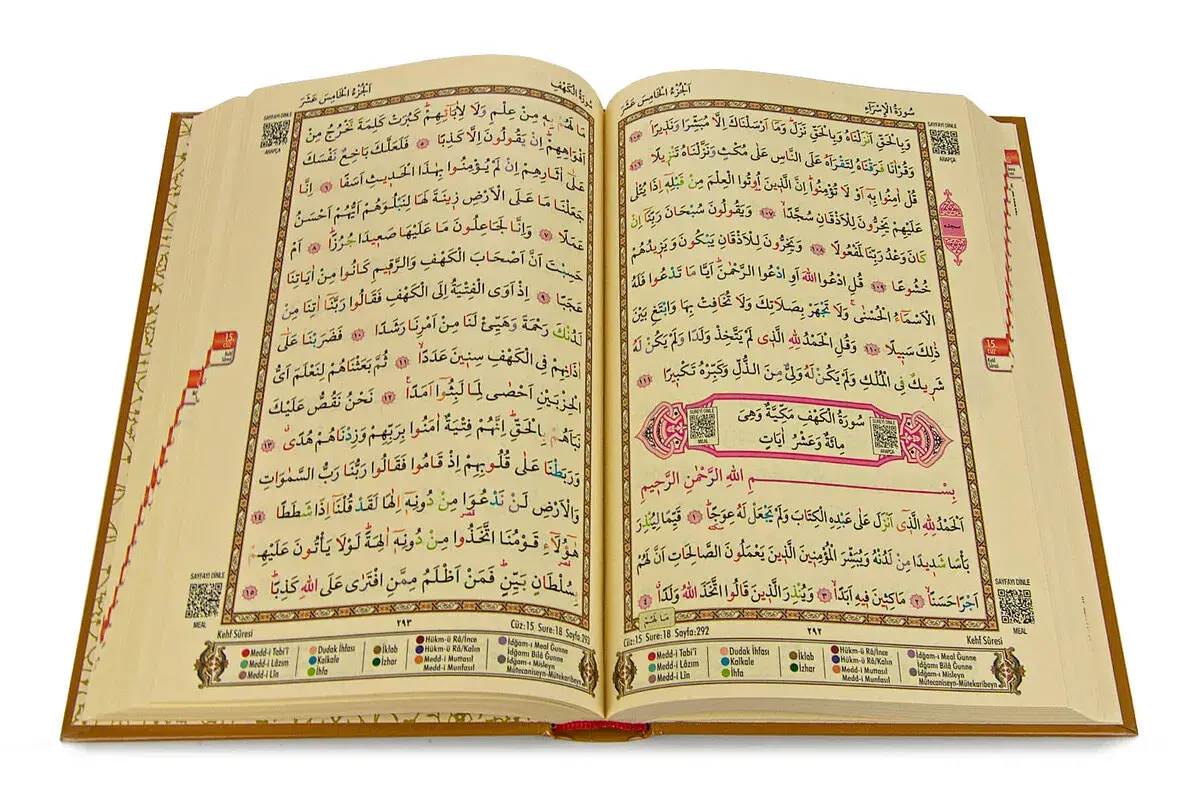 سُورَةُ الْاِسْرَاءِ
اَلْجُزْءُ الْخَامِسَ عَشَرَ
SAYFAYI DİNLE
ARAPÇA
وَبِالْحَقِّ اَنْزَلْنَاهُ وَبِالْحَقِّ نَزَلَ وَمَا اَرْسَلْنَاكَ اِلَّا مُبَشِّرًا وَنَذِيرًا ١٠٥
وَقُرْاٰنًا فَرَقْنَاهُ لِتَقْرَاَهُ عَلَى النَّاسِ عَلٰى مُكْثٍ وَنَزَّلْنَاهُ تَنْزِيلًا ١٠٦
قُلْ اٰمِنُوا بِهٖٓ اَوْ لَا تُؤْمِنُوا اِنَّ الَّذِينَ اُوتُوا الْعِلْمَ مِنْ قَبْلِهٖٓ اِذَا يُتْلٰى
عَلَيْهِمْ يَخِرُّونَ لِلْاَذْقَانِ سُجَّدًا ١٠٧ وَيَقُولُونَ سُبْحَانَ رَبِّنَٓا اِنْ
كَانَ وَعْدُ رَبِّنَا لَمَفْعُولًا ١٠٨ وَيَخِرُّونَ لِلْاَذْقَانِ يَبْكُونَ وَيَزِيدُهُمْ
خُشُوعًا ١٠٩ قُلِ ادْعُوا اللهَ اَوِ ادْعُوا الرَّحْمٰنَ اَيًّا مَا تَدْعُوا فَلَهُ
الْاَسْمَٓاءُ الْحُسْنٰى وَلَا تَجْهَرْ بِصَلَاتِكَ وَلَا تُخَافِتْ بِهَا وَابْتَغِ بَيْنَ
ذٰلِكَ سَبِيلًا ١١٠ وَقُلِ الْحَمْدُ لِلّٰهِ الَّذٖى لَمْ يَتَّخِذْ وَلَدًا وَلَمْ يَكُنْ لَهُ
شَرِيكٌ فِى الْمُلْكِ وَلَمْ يَكُنْ لَهُ وَلِىٌّ مِنَ الذُّلِّ وَكَبِّرْهُ تَكْبِيرًا ١١١
سجده
SUREYİ DİNLE
MEAL
سُورَةُ الْكَهْفِ مَكِّيَّةٌ وَهِىَ
مِائَةٌ وَعَشْرُ اٰيَاتٍ
SUREYİ DİNLE
ARAPÇA
بِسْمِ اللهِ الرَّحْمٰنِ الرَّحِيمِ
اَلْحَمْدُ لِلّٰهِ الَّذٖٓى اَنْزَلَ عَلٰى عَبْدِهِ الْكِتَابَ وَلَمْ يَجْعَلْ لَهُ عِوَجًا ١ قَيِّمًا لِيُنْذِرَ
بَاْسًا شَدِيدًا مِنْ لَدُنْهُ وَيُبَشِّرَ الْمُؤْمِنِينَ الَّذِينَ يَعْمَلُونَ الصَّالِحَاتِ اَنَّ لَهُمْ
اَجْرًا حَسَنًا ٢ مَاكِثِينَ فِيهِ اَبَدًا ٣ وَيُنْذِرَ الَّذِينَ قَالُوا اتَّخَذَ اللهُ وَلَدًا ٤
مَا لَهُمْ
15. CÜZ
Kehf Sûresi
SAYFAYI DİNLE
MEAL
Cüz:15 Sure:18 Sayfa:292
٢٩٢
Kehf Sûresi
Medd-i Tabi'î
Medd-i Lâzım
Medd-i Lîn
Dudak İhfası
Kalkale
İhfa
İklab
İzhar
Hükm-ü Râ/İnce
Hükm-ü Râ/Kalın
Medd-i Muttasıl
Medd-i Munfasıl
İdğam-ı Meal Ğunne
İdğamı Bilâ Ğunne
İdğam-ı Misleyn
Mütecaniseyn-Mütekaribeyn
سُورَةُ الْكَهْفِ
اَلْجُزْءُ الْخَامِسَ عَشَرَ
SAYFAYI DİNLE
ARAPÇA
مَا لَهُمْ بِهٖ مِنْ عِلْمٍ وَلَا لِاٰبَٓائِهِمْ كَبُرَتْ كَلِمَةً تَخْرُجُ مِنْ
اَفْوَاهِهِمْ اِنْ يَقُولُونَ اِلَّا كَذِبًا ٥ فَلَعَلَّكَ بَاخِعٌ نَفْسَكَ
عَلٰٓى اٰثَارِهِمْ اِنْ لَمْ يُؤْمِنُوا بِهٰذَا الْحَدِيثِ اَسَفًا ٦ اِنَّا
جَعَلْنَا مَا عَلَى الْاَرْضِ زِينَةً لَهَا لِنَبْلُوَهُمْ اَيُّهُمْ اَحْسَنُ
عَمَلًا ٧ وَاِنَّا لَجَاعِلُونَ مَا عَلَيْهَا صَعِيدًا جُرُزًا ٨ اَمْ
حَسِبْتَ اَنَّ اَصْحَابَ الْكَهْفِ وَالرَّقِيمِ كَانُوا مِنْ اٰيَاتِنَا
عَجَبًا ٩ اِذْ اَوَى الْفِتْيَةُ اِلَى الْكَهْفِ فَقَالُوا رَبَّنَٓا اٰتِنَا مِنْ
لَدُنْكَ رَحْمَةً وَهَيِّئْ لَنَا مِنْ اَمْرِنَا رَشَدًا ١٠ فَضَرَبْنَا عَلٰٓى
اٰذَانِهِمْ فِى الْكَهْفِ سِنِينَ عَدَدًا ١١ ثُمَّ بَعَثْنَاهُمْ لِنَعْلَمَ اَىُّ
الْحِزْبَيْنِ اَحْصٰى لِمَا لَبِثُٓوا اَمَدًا ١٢ نَحْنُ نَقُصُّ عَلَيْكَ
نَبَاَهُمْ بِالْحَقِّ اِنَّهُمْ فِتْيَةٌ اٰمَنُوا بِرَبِّهِمْ وَزِدْنَاهُمْ هُدًى ١٣
وَرَبَطْنَا عَلٰى قُلُوبِهِمْ اِذْ قَامُوا فَقَالُوا رَبُّنَا رَبُّ السَّمٰوَاتِ
وَالْاَرْضِ لَنْ نَدْعُوَا مِنْ دُونِهٖٓ اِلٰهًا لَقَدْ قُلْنَٓا اِذًا شَطَطًا ١٤
هٰٓؤُلَٓاءِ قَوْمُنَا اتَّخَذُوا مِنْ دُونِهٖٓ اٰلِهَةً لَوْلَا يَاْتُونَ عَلَيْهِمْ
بِسُلْطَانٍ بَيِّنٍ فَمَنْ اَظْلَمُ مِمَّنِ افْتَرٰى عَلَى اللهِ كَذِبًا ١٥
15. CÜZ
Kehf Sûresi
SAYFAYI DİNLE
MEAL
Kehf Sûresi
٢٩٣
Cüz:15 Sure:18 Sayfa:292
Medd-i Tabi'î
Medd-i Lâzım
Medd-i Lîn
Dudak İhfası
Kalkale
İhfa
İklab
İzhar
Hükm-ü Râ/İnce
Hükm-ü Râ/Kalın
Medd-i Muttasıl
Medd-i Munfasıl
İdğam-ı Meal Ğunne
İdğamı Bilâ Ğunne
İdğam-ı Misleyn
Mütecaniseyn-Mütekaribeyn